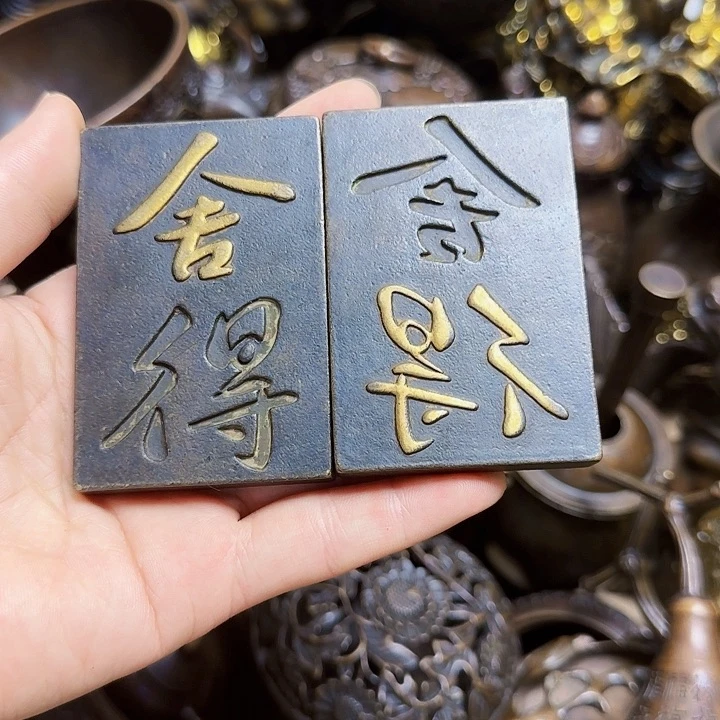 舍
得
舍
得